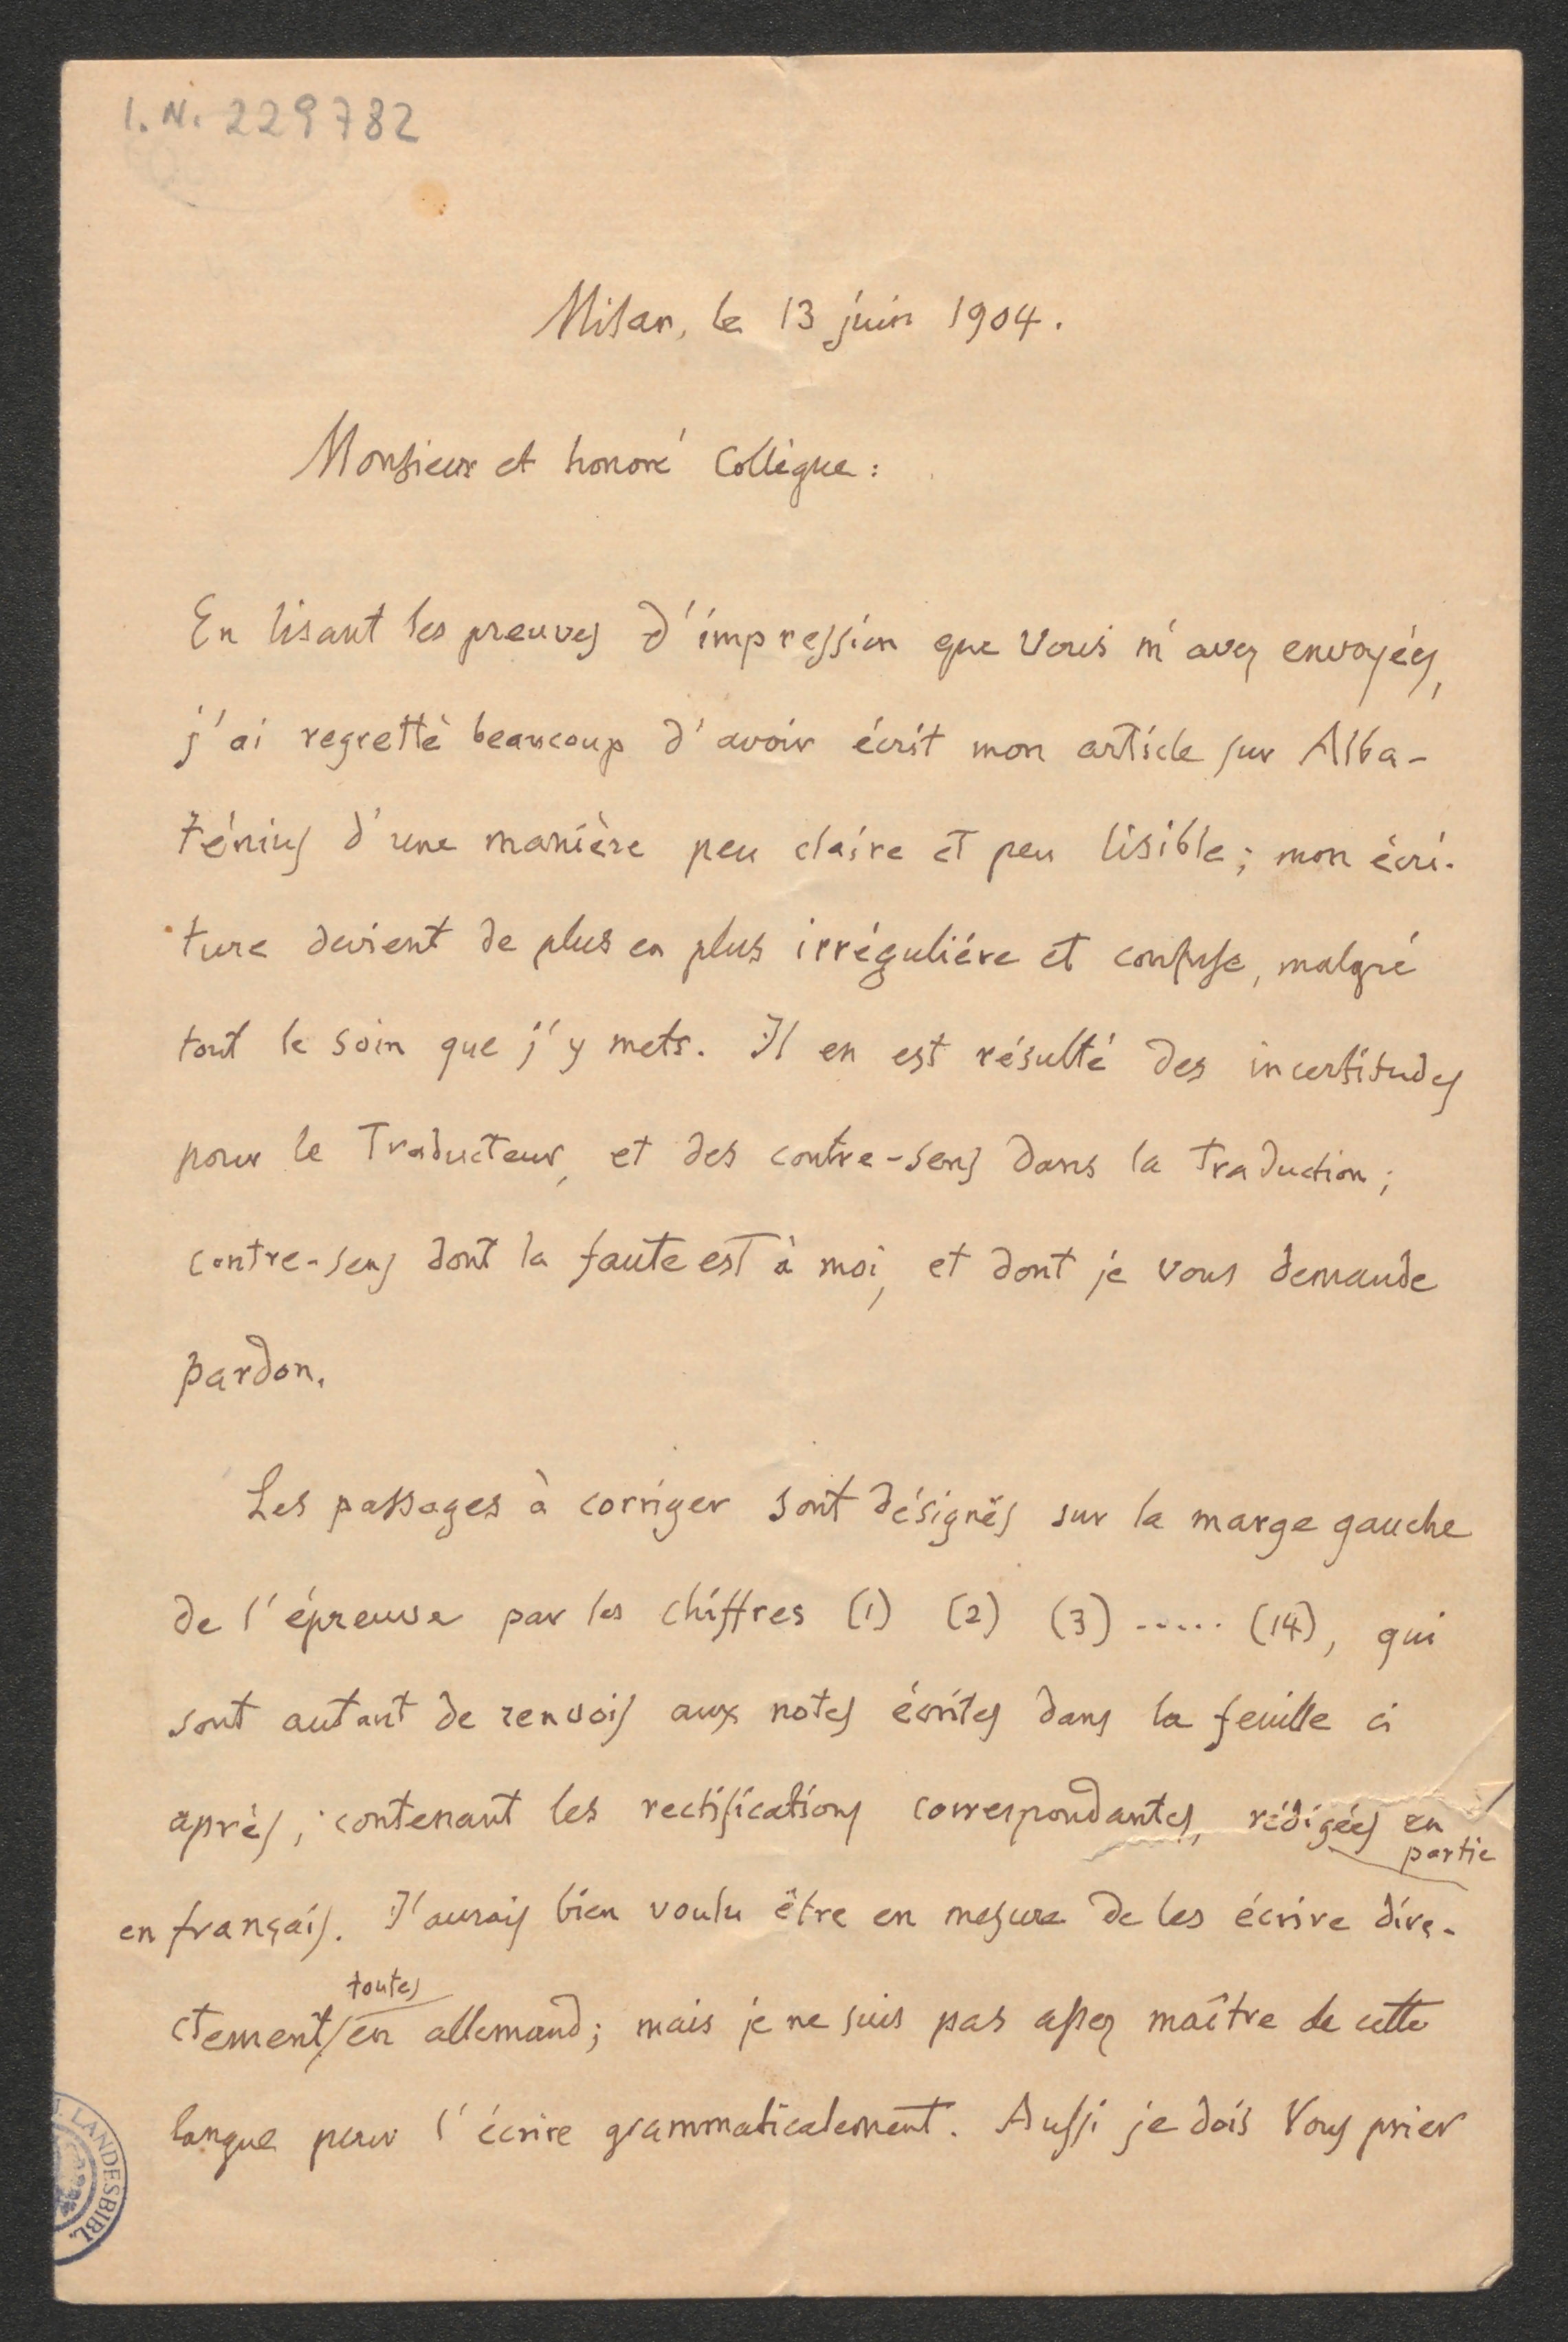 I.N. 229782
Milan, le 13 juin 1904.
Monsieur et honoré Collègue:
En lisant les preuves d'impression que Vous m'avez envoyées,
j'ai regretté beaucoup d'avoir écrit mon article sur Alba-
ténius d'une manière peu claire et peu lisible; mon écri-
ture devient de plus en plus irréguliére et confuse, malgré
tout le soin que j'y mets. Il en est résulté des incertitudes
pour le Traducteur, et des contre-sens dans la traduction;
contre-sens dont la faute est à moi, et dont je vous demande
pardon.
Les passages à corriger sont désignés sur la marge gauche
de l'épreuve par les chiffres (1) (2) (3) ..... (14), qui
sont autant de renvois aux notes écrites dans la feuille ci
après, contenant les rectifications correspondantes, rédigées en
partie
en français. J'aurais bien voulu être en mesure de les écrire dire-
toutes
ctement en allemand; mais je ne suis pas assez maître de cette
langue pour l'écrire grammaticalement. Aussi je dois Vous prier
LANDESBIBL.